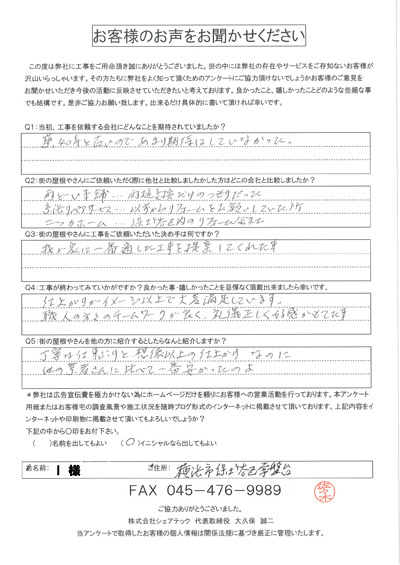 お客様のお声をお聞かせください
この度は弊社に工事をご用命頂き誠にありがとうございました。世の中には弊社の存在やサービスをご存知ないお客様が
沢山いらっしゃいます。その方たちに弊社をよく知って頂くためのアンケートにご協力頂けないでしょうかお客様のご意見を
お聞かせいただき今後の活動に反映させていただきたいと考えております。良かったこと、嬉しかったことどのような些細な事
でも結構です。是非ご協力お願い致します。出来るだけ具体的に書いて頂ければ幸いです。
Q1:当初、工事を依頼する会社にどんなことを期待されていましたか?
築40年と古いので あまり期待はしていなかった。
Q2:街の屋根やさんにご依頼いただく際に他社と比較しましたかした方はどこの会社と比較しましたか?
雨どい
以前からリフォームをお願いしていた所
ニッカホーム … 保土ヶ谷区内のリフォーム会社
Q3:街の屋根やさんに工事をご依頼いただいた決め手は何ですか?
我が家に一番適した工事を提案してくれた事
Q4:工事が終わってみていかがですか?良かった事・嬉しかったことを忌憚なく頂戴出来ましたら幸いです。
仕上がりがイメージ以上で大変満足しています。
職人の方々のチームワークが良く、礼儀正しく好感がもてた事
Q5:街の屋根やさんを他の方に紹介するとしたらなんと紹介しますか?
丁寧な仕事ぶりと想像以上の仕上がり なのに
他の業者さんに比べて一番安かったのよ
*弊社は広告宣伝費を極力かけない為にホームページだけを頼りにお客様への営業活動を行っております。本アンケート
用紙またはお客様宅の調査風景や施工状況を随時ブログ形式のインターネットに掲載させて頂いております。上記内容をイ
ンターネットや印刷物に掲載させて頂いてもよろしいでしょうか?
下記の中から〇印をお付け下さい。
( )名前を出してもよい (〇)イニシャルなら出してもよい
お名前: I 様 ご住所: 横浜市保土ヶ谷区常盤台
FAX 045-476-9989
佐々木
ご協力ありがとうございました。
株式会社シェアテック 代表取締役 大久保 誠二
当アンケートで取得したお客様の個人情報は関係法規に基づき厳正に管理いたします。